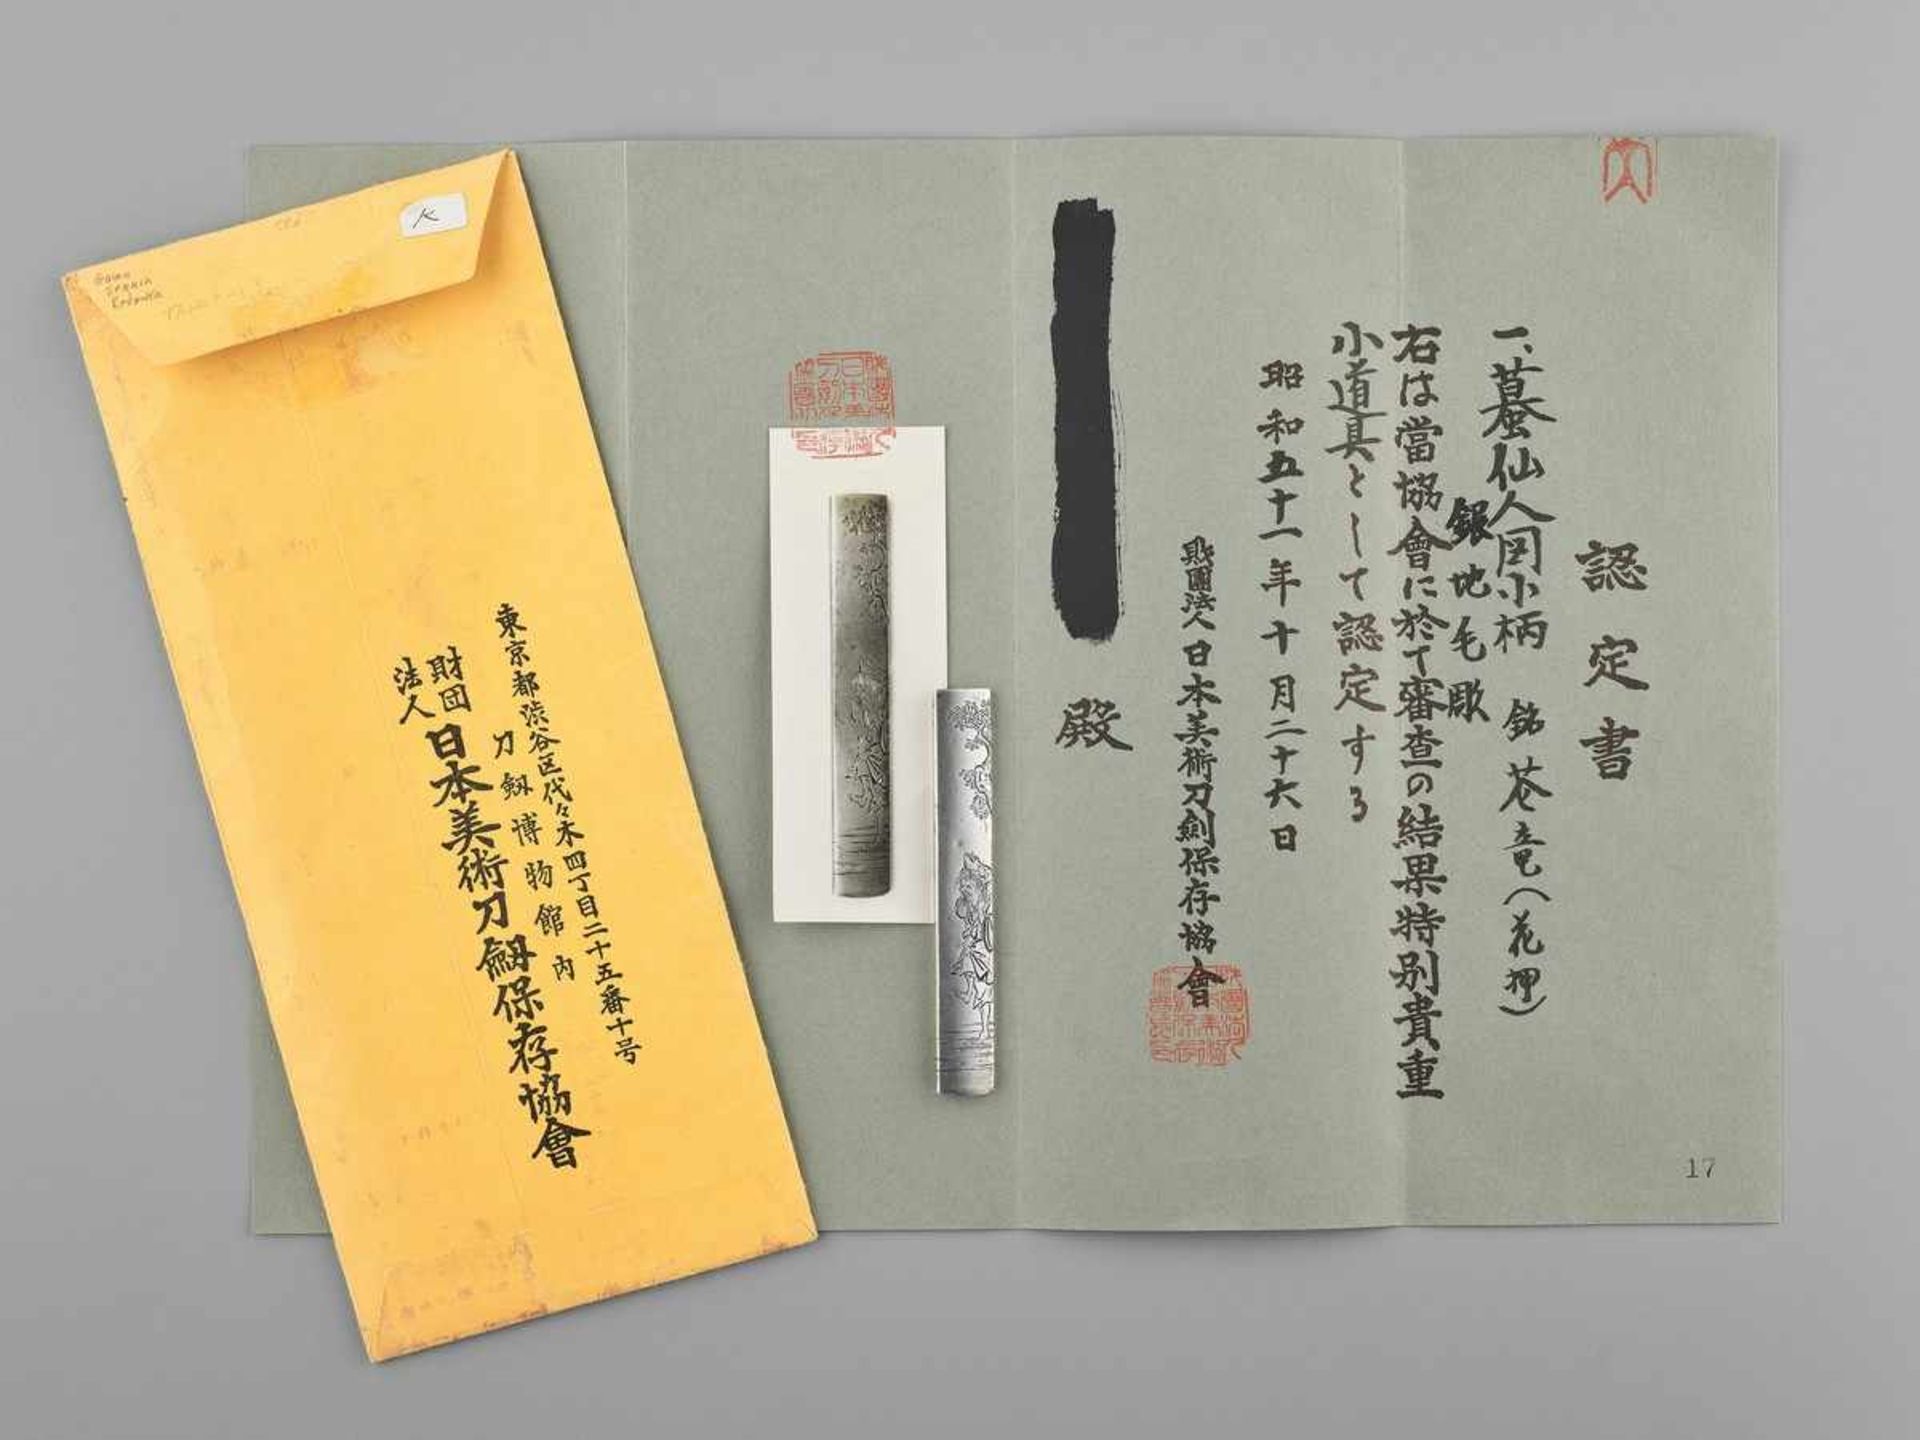 認定書
一、蟇仙人図小柄 銘 苍竜(花押)
銀地毛彫
右は當協會に於て審査の結果特別貴重
小道具として認定する
昭和五十一年十月二十六日
財團法人日本美術刀剣保存協會
殿
17
東京都渋谷区代々木四丁目二十五番十号
刀劔博物館内
財団
法人
日本美術刀劔保存協會